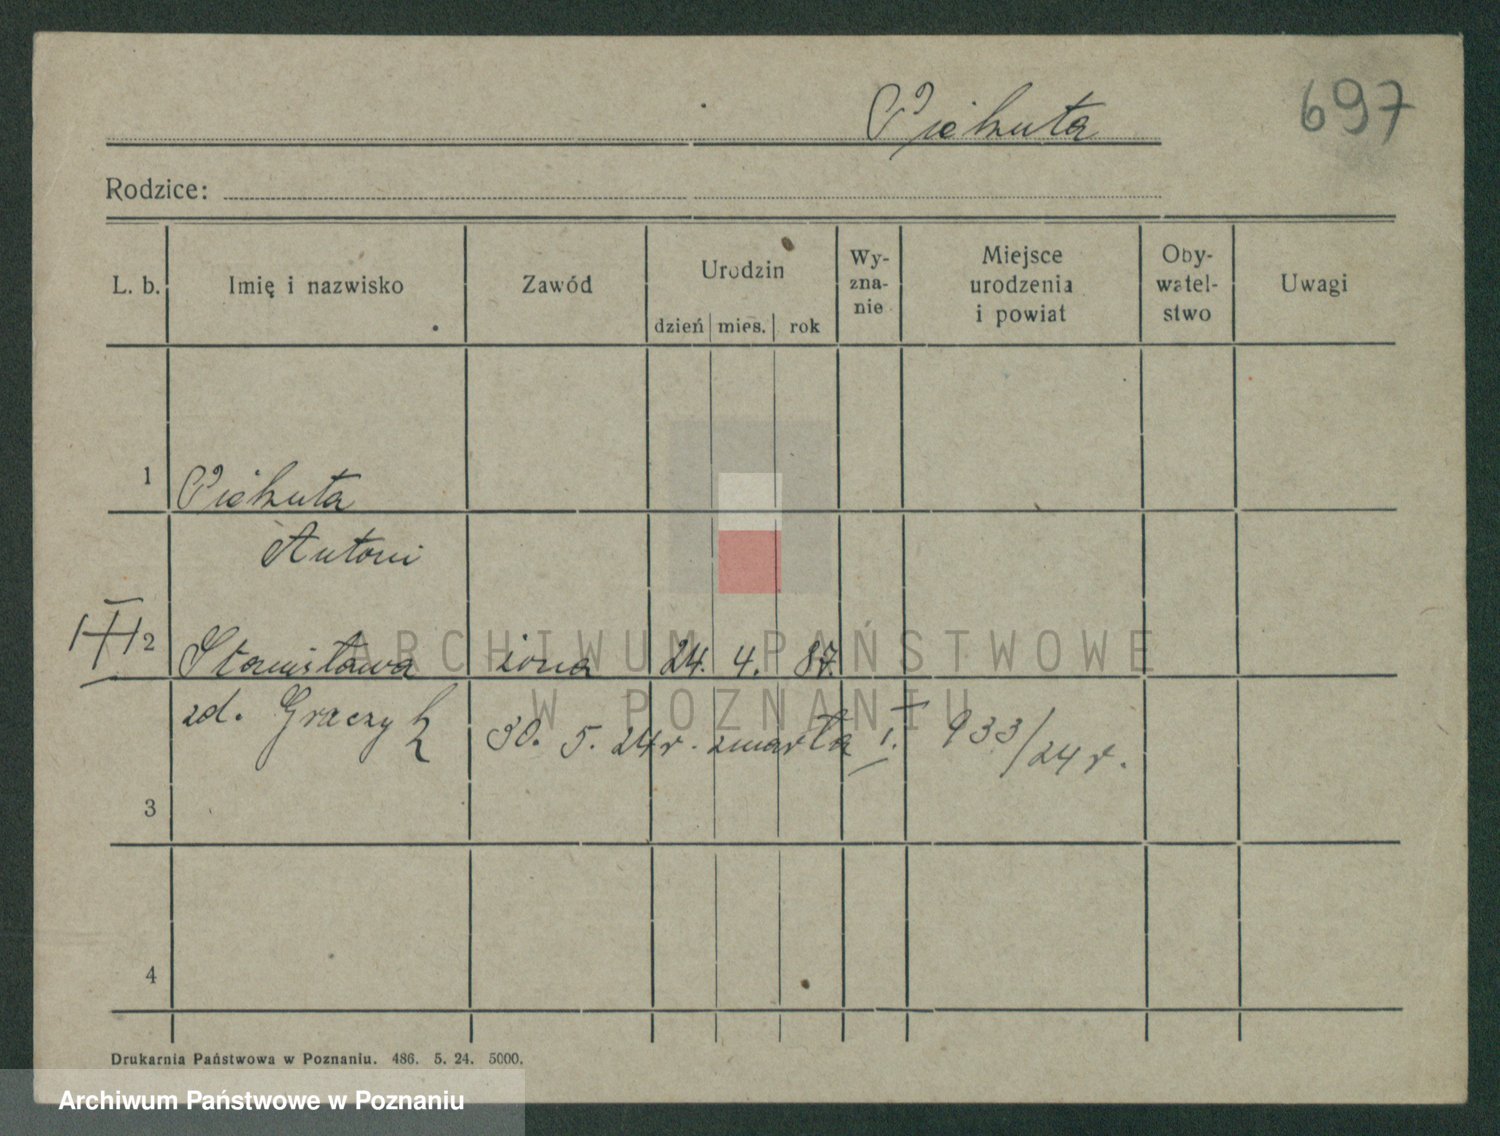 Piekuta 697
Rodzice:
L. b. Imię i nazwisko Zawód Urodzin dzień mies. rok Wy-zna-nie Miejsce urodzenia i powiat Oby-watel-stwo Uwagi
1 Piekuta
Antoni
2 Stanisława żona 24. 4. 87.
zd. Graczyk 30. 5. 24 r. zmarła I. 933/24 r.
3
4
Drukarnia Państwowa w Poznaniu. 486. 5. 24. 5000.
ARCHIWUM PAŃSTWOWE
W POZNANIU
Archiwum Państwowe w Poznaniu